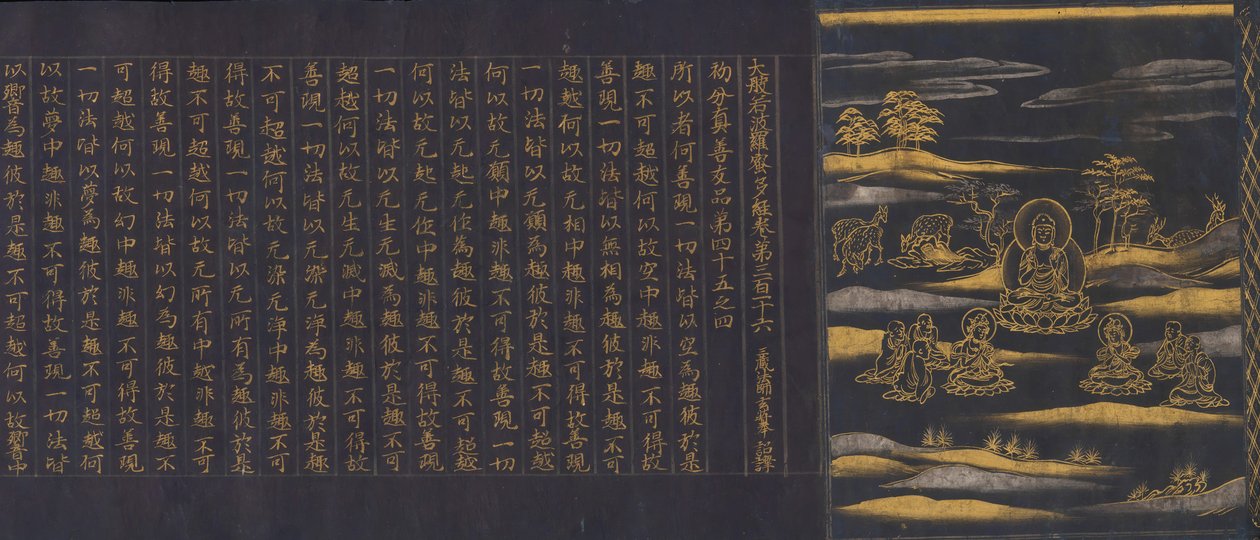 大般若波羅蜜多經卷第三百一十六 三藏法師玄奘 詔譯
初分真善友品第四十五之四
所以者何善現一切法皆以空為趣彼於是
趣不可超越何以故空中趣非趣不可得故
善現一切法皆以無相為趣彼於是趣不可
超越何以故无相中趣非趣不可得故善現
一切法皆以无願為趣彼於是趣不可超越
何以故无願中趣非趣不可得故善現一切
法皆以无起无作為趣彼於是趣不可超越
何以故无起无作中趣非趣不可得故善現
一切法皆以无生无滅為趣彼於是趣不可
超越何以故无生无滅中趣非趣不可得故
善現一切法皆以无染无淨為趣彼於是趣
不可超越何以故无染无淨中趣非趣不可
得故善現一切法皆以无所有為趣彼於是
趣不可超越何以故无所有中趣非趣不可
得故善現一切法皆以幻為趣彼於是趣不
可超越何以故幻中趣非趣不可得故善現
一切法皆以夢為趣彼於是趣不可超越何
以故夢中趣非趣不可得故善現一切法皆
以響為趣彼於是趣不可超越何以故響中